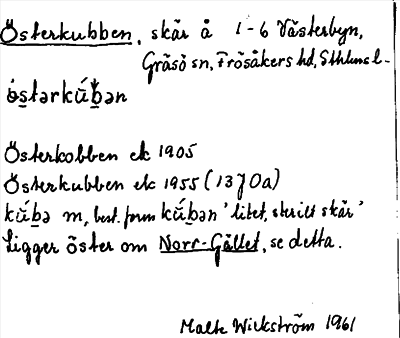 Österkubben, skär å 1-6 Västerbyn,
Gräsö sn, Frösåkers hd, Sthlms l-
ö̀s̠tərkú́b̠ən
Österkobben ek 1905
Österkubben ek 1955 (13J0a)
kú́b̠ə m, best. form kú́b̠ən 'litet, sterilt skär'
Ligger öster om Norr-Gället, se detta.
Malte Wickström 1961